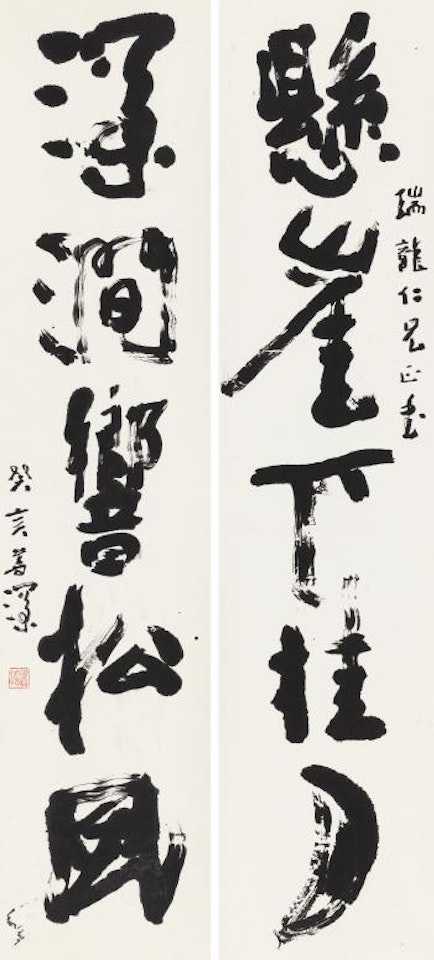 懸崖下桂月
瑞龍仁兄正書
深澗響松風
癸亥善深